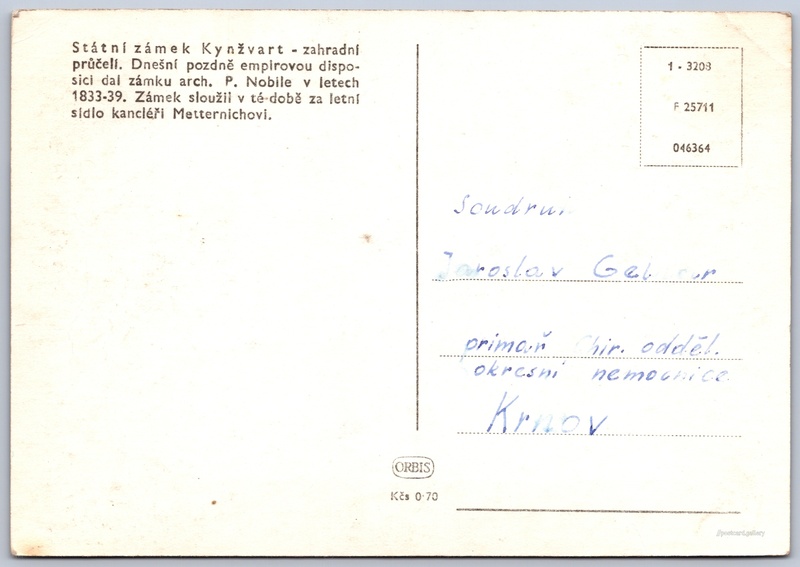 Státní zámek Kynžvart - zahradní
průčelí. Dnešní pozdně empirovou dispo-
sici dal zámku arch. P. Nobile v letech
1833-39. Zámek sloužil v té době za letní
sídlo kancléři Metternichovi.
1 - 3208
F 25711
046364
Soudruh
Jaroslav
primář Chir. odděl.
okresní nemocnice
Krnov
ORBIS
Kčs 0·70